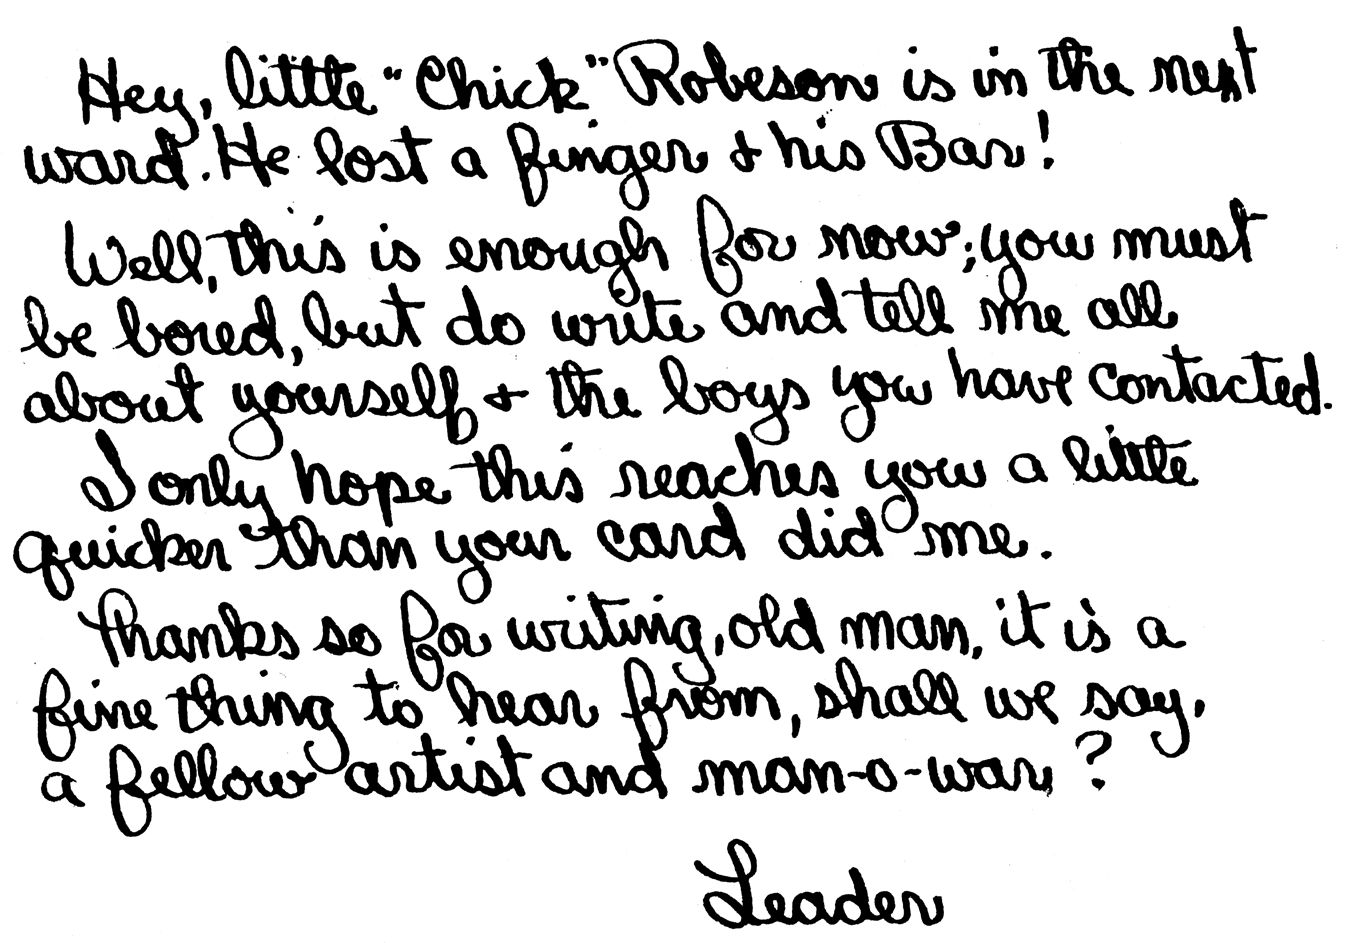 Hey, little "Chick" Robeson is in the next
ward. He lost a finger & his Bar!
Well, this is enough for now; you must
be bored, but do write and tell me all
about yourself & the boys you have contacted.
I only hope this reaches you a little
quicker than your card did me.
Thanks so for writing, old man, it is a
fine thing to hear from, shall we say,
a fellow artist and man-o-war?
Leader